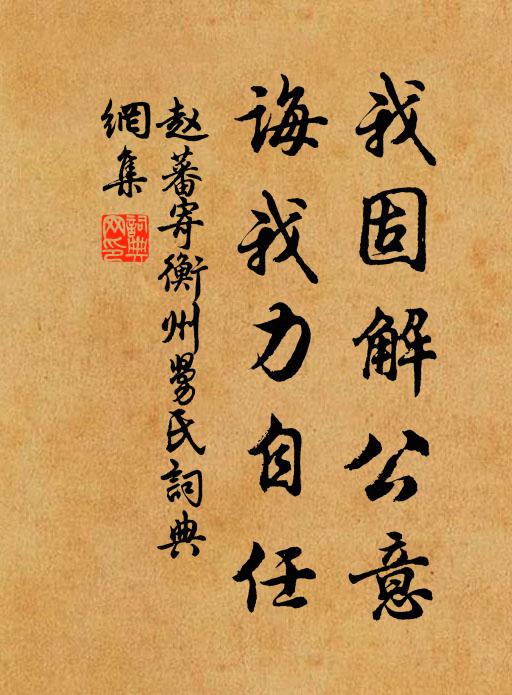 我固解公意
誨我力自任
赵蕃寄衡州舅氏詞典
網集
詞典网印